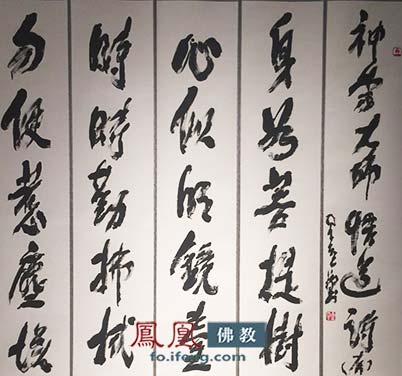 神秀大师悟道詩
身为菩提樹
心似明鏡臺
時時勤拂拭
勿使惹塵埃
鳳凰佛教
fo.ifeng.com